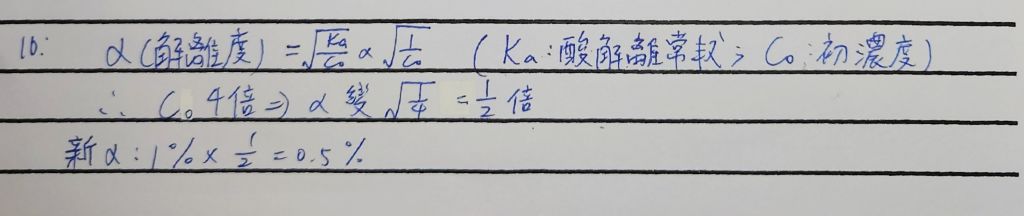 10: α(解離度) = √(Ka/C₀) ∝ √(1/C₀) (Ka:酸解離常數; C₀:初濃度)
∴ C₀ 4倍 ⇒ α 變 √(1/4) = 1/2 倍
新α: 1% × 1/2 = 0.5%